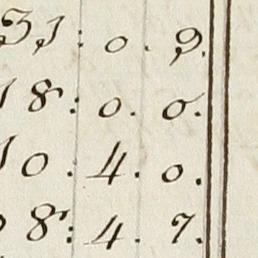 31: 0. 9.
18: 0. 0.
10. 4. 0.
8: 4. 7.